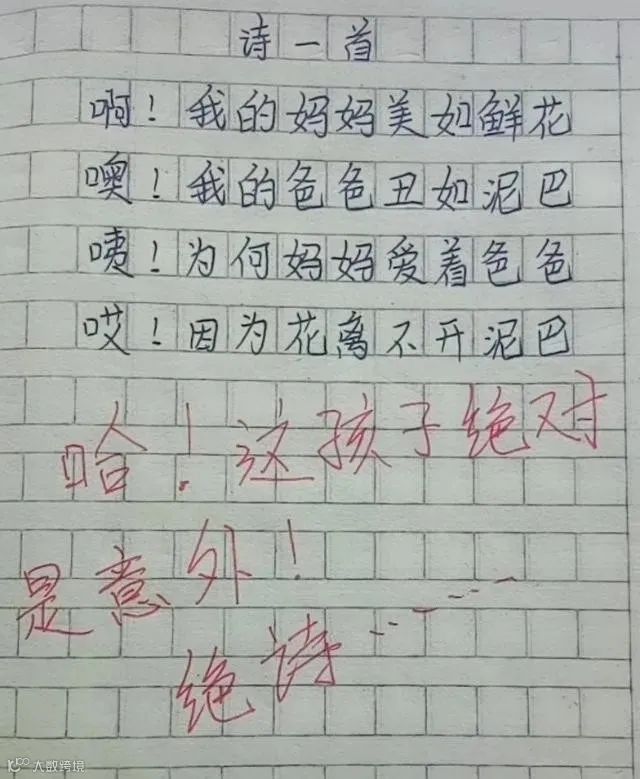 诗一首
啊！我的妈妈美如鲜花
噢！我的爸爸丑如泥巴
咦！为何妈妈爱着爸爸
哎！因为花离不开泥巴
哈！这孩子绝对
是意外！
绝诗……
大数跨境